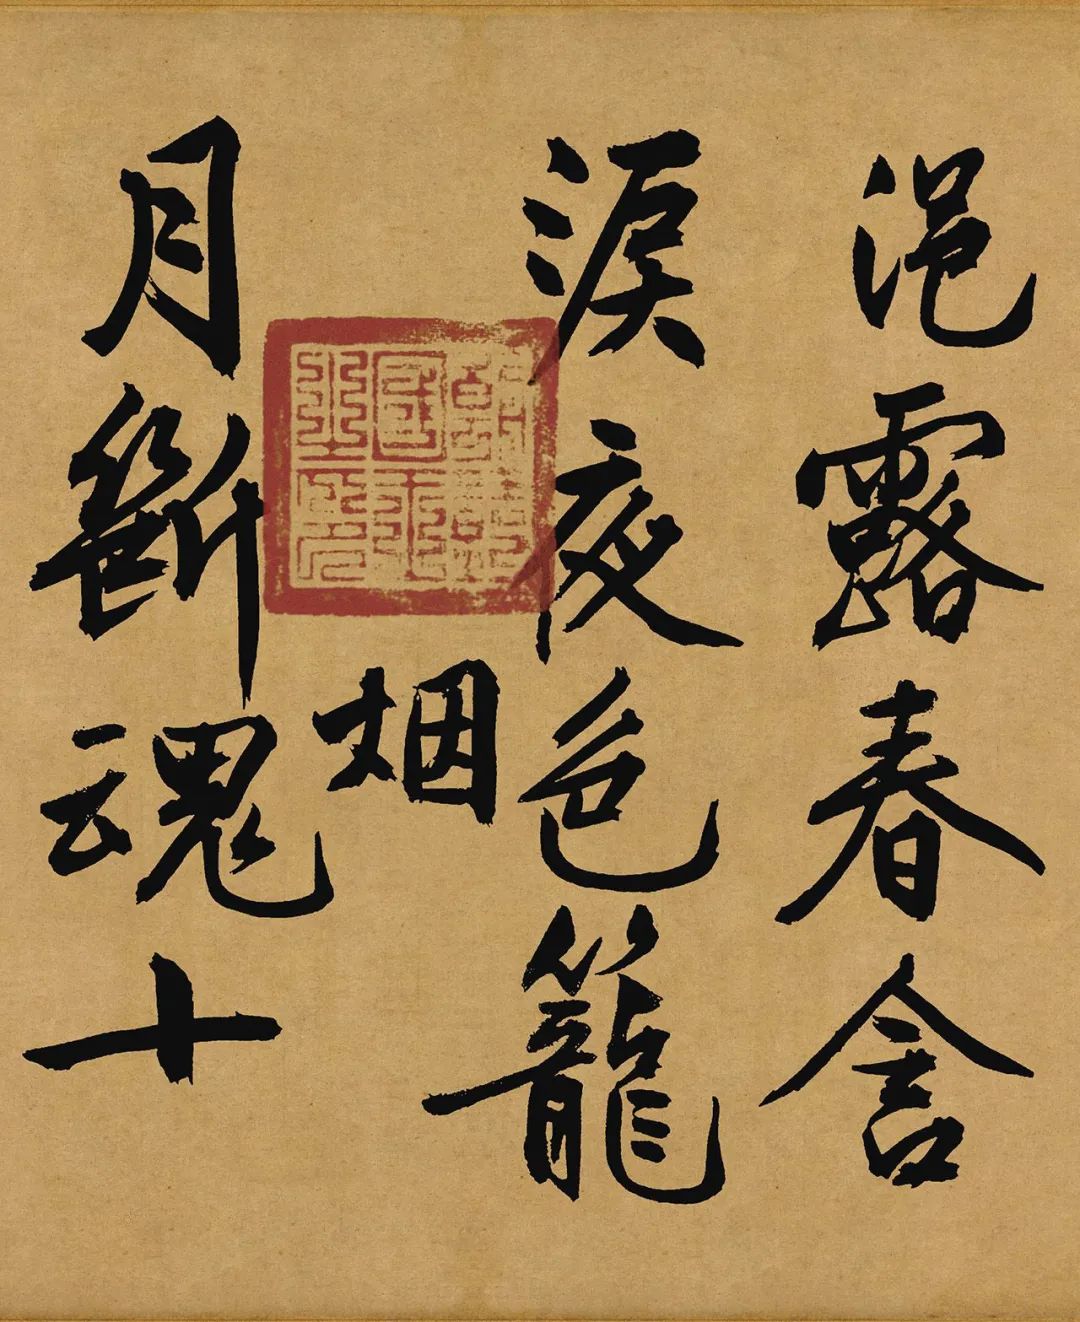 浥露春含
淚夜色籠
烟
月斷魂十